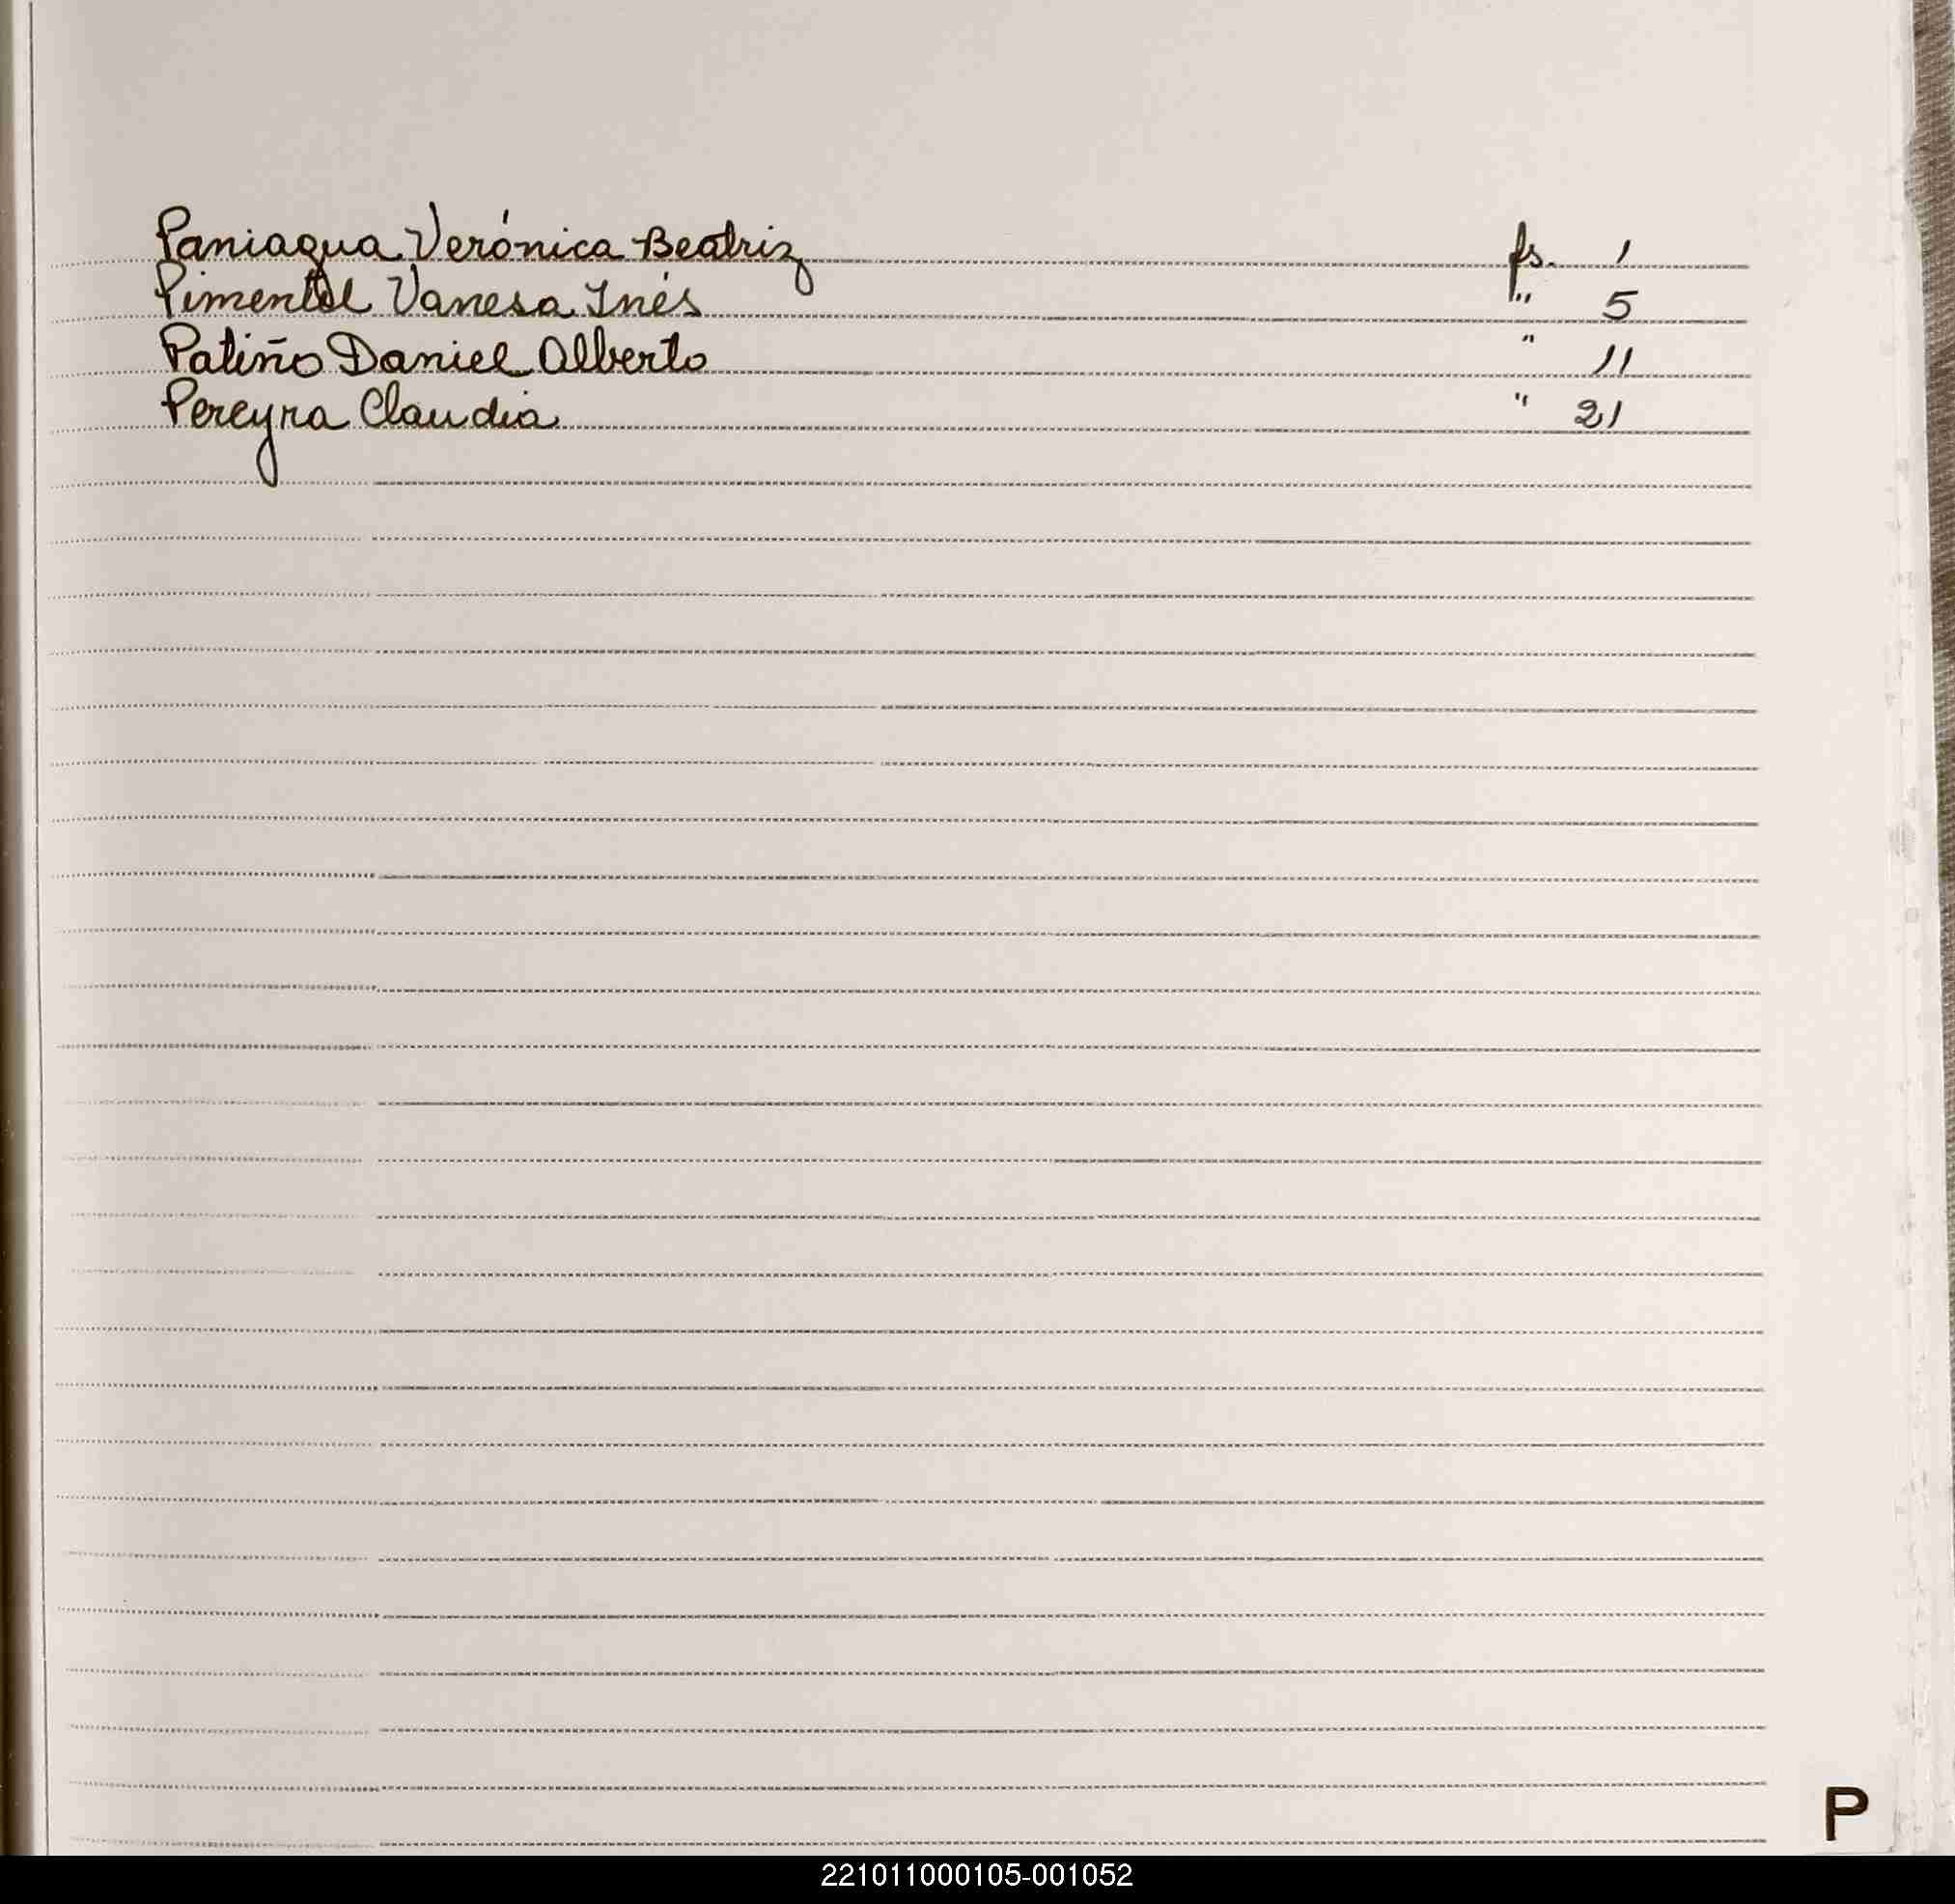 Paniagua Verónica Beatriz fs. 1
Pimentel Vanesa Inés " 5
Patiño Daniel Alberto " 11
Pereyra Claudia " 21
P
221011000105-001052